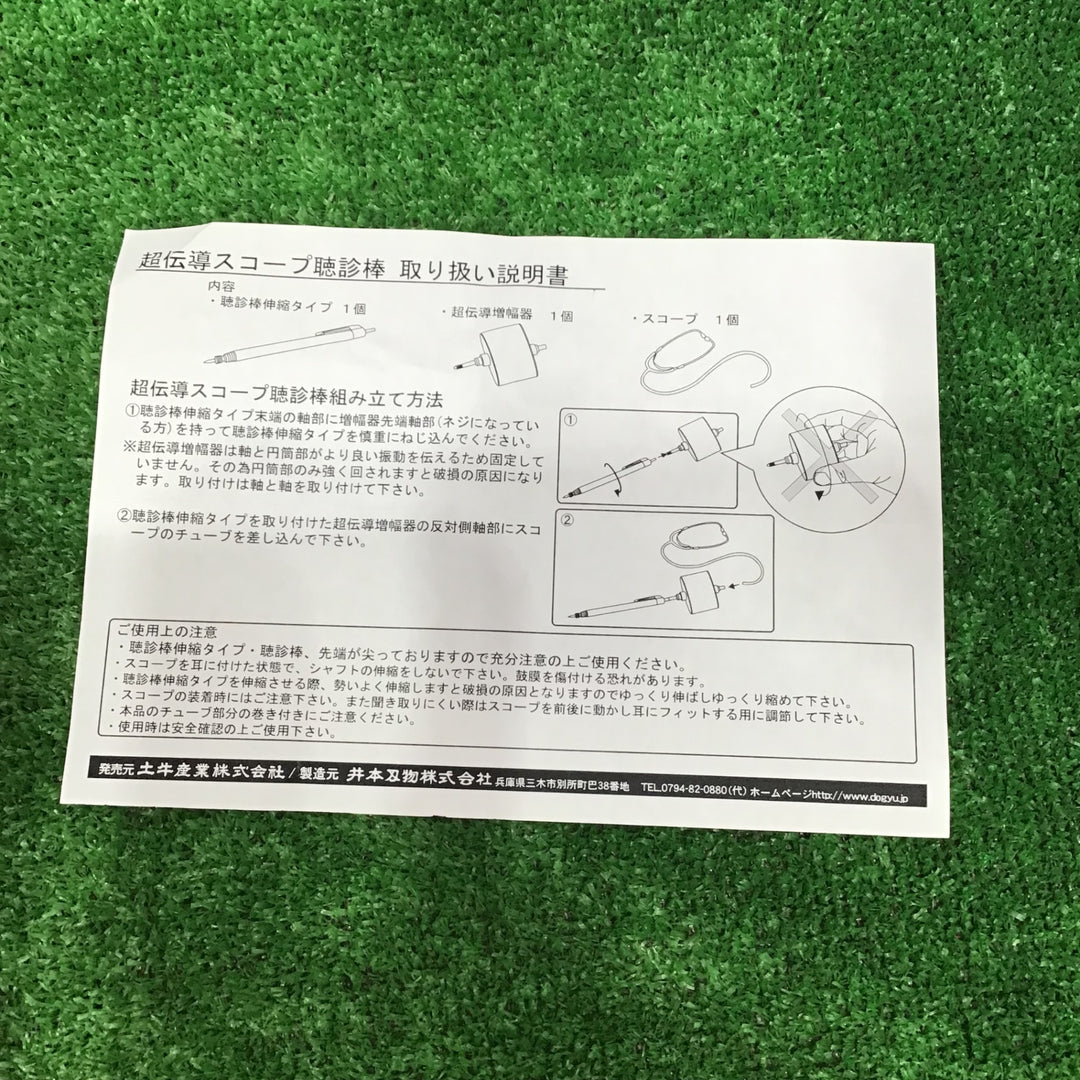 超伝導スコープ聴診棒 取り扱い説明書
内容
・聴診棒伸縮タイプ 1個
・超伝導増幅器 1個
・スコープ 1個
超伝導スコープ聴診棒組み立て方法
①聴診棒伸縮タイプ末端の軸部に増幅器先端軸部(ネジになってい
る方)を持って聴診棒伸縮タイプを慎重にねじ込んでください。
※超伝導増幅器は軸と円筒部がより良い振動を伝えるため固定して
いません。その為円筒部のみ強く回されますと破損の原因になり
ます。取り付けは軸と軸を取り付けて下さい。
②聴診棒伸縮タイプを取り付けた超伝導増幅器の反対側軸部にスコ
ープのチューブを差し込んで下さい。
①
②
ご使用上の注意
・聴診棒伸縮タイプ・聴診棒、先端が尖っておりますので充分注意の上ご使用ください。
・スコープを耳に付けた状態で、シャフトの伸縮をしないで下さい。鼓膜を傷付ける恐れがあります。
・聴診棒伸縮タイプを伸縮させる際、勢いよく伸縮しますと破損の原因となりますのでゆっくり伸ばしゆっくり縮めて下さい。
・スコープの装着時にはご注意下さい。また聞き取りにくい際はスコープを前後に動かし耳にフィットする用に調節して下さい。
・本品のチューブ部分の巻き付きにご注意ください。
・使用時は安全確認の上ご使用下さい。
発売元 土牛産業株式会社/製造元 井本刃物株式会社 兵庫県三木市別所町巴38番地 TEL.0794-82-0880(代) ホームページhttp://www.dogyu.jp